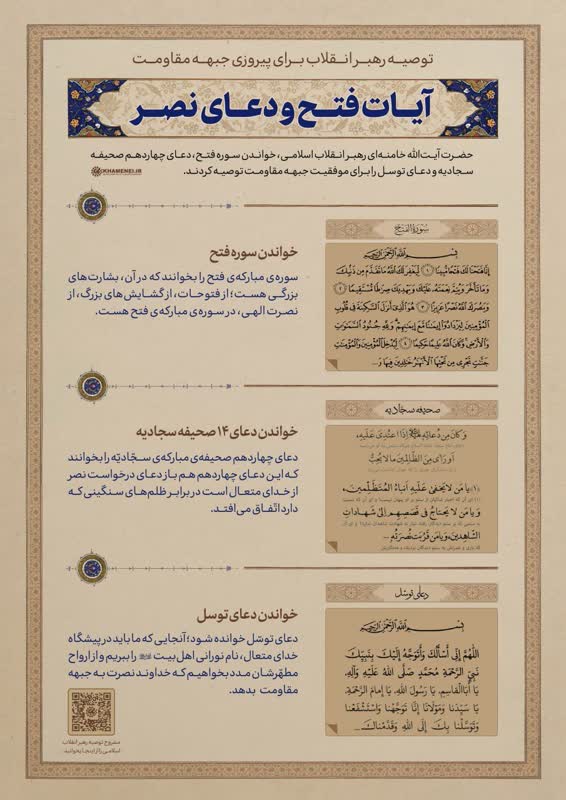 توصیه رهبر انقلاب برای پیروزی جبهه مقاومت
آیات فتح و دعای نصر
حضرت آیت‌الله خامنه‌ای رهبر انقلاب اسلامی، خواندن سوره فتح، دعای چهاردهم صحیفه
سجادیه و دعای توسل را برای موفقیت جبهه مقاومت توصیه کردند.
KHAMENEI.IR
سورة الفتح
خواندن سوره فتح
سوره‌ی مبارکه‌ی فتح را بخوانند که در آن، بشارت‌های
بزرگی هست؛ از فتوحات، از گشایش‌های بزرگ، از
نصرت الهی، در سوره‌ی مبارکه‌ی فتح هست.
بِسْمِ اللَّهِ الرَّحْمَنِ الرَّحِيمِ
إِنَّا فَتَحْنَا لَكَ فَتْحًا مُبِينًا ﴿۱﴾ لِيَغْفِرَ لَكَ اللَّهُ مَا تَقَدَّمَ مِنْ ذَنْبِكَ
وَمَا تَأَخَّرَ وَيُتِمَّ نِعْمَتَهُ عَلَيْكَ وَيَهْدِيَكَ صِرَاطًا مُسْتَقِيمًا ﴿۲﴾
وَيَنْصُرَكَ اللَّهُ نَصْرًا عَزِيزًا ﴿۳﴾ هُوَ الَّذِي أَنْزَلَ السَّكِينَةَ فِي قُلُوبِ
الْمُؤْمِنِينَ لِيَزْدَادُوا إِيمَانًا مَعَ إِيمَانِهِمْ وَلِلَّهِ جُنُودُ السَّمَاوَاتِ
وَالْأَرْضِ وَكَانَ اللَّهُ عَلِيمًا حَكِيمًا ﴿۴﴾ لِيُدْخِلَ الْمُؤْمِنِينَ وَالْمُؤْمِنَاتِ
جَنَّاتٍ تَجْرِي مِنْ تَحْتِهَا الْأَنْهَارُ خَالِدِينَ فِيهَا وَ...
صحیفه سجادیه
خواندن دعای ۱۴ صحیفه سجادیه
دعای چهاردهم صحیفه‌ی مبارکه‌ی سجّادیّه را بخوانند
که این دعای چهاردهم هم باز دعای درخواست نصر
از خدای متعال است در برابر ظلم‌های سنگینی که
دارد اتّفاق می‌افتد.
وَ كَانَ مِنْ دُعَائِهِ إِذَا اعْتُدِيَ عَلَيْهِ،
أَوْ رَأَى مِنَ الظَّالِمِينَ مَا لَا يُحِبُّ
(۱) يَا مَنْ لَا يَخْفَى عَلَيْهِ أَنْبَاءُ الْمُتَظَلِّمِينَ،
وَ يَا مَنْ لَا يَحْتَاجُ فِي قَصَصِهِمْ إِلَى شَهَادَاتِ
الشَّاهِدِينَ، وَ يَا مَنْ قَرُبَتْ نُصْرَتُهُ...
دعای توسل
خواندن دعای توسل
دعای توسّل خوانده شود؛ آنجایی که ما باید در پیشگاه
خدای متعال، نام نورانی اهل‌بیت را ببریم و از ارواح
مطهّرشان مدد بخواهیم که خداوند نصرت به جبهه
مقاومت بدهد.
بِسْمِ اللَّهِ الرَّحْمَنِ الرَّحِيمِ
اللَّهُمَّ إِنِّي أَسْأَلُكَ وَأَتَوَجَّهُ إِلَيْكَ بِنَبِيِّكَ
نَبِيِّ الرَّحْمَةِ مُحَمَّدٍ صَلَّى اللهُ عَلَيْهِ وَآلِهِ.
يَا أَبَا الْقَاسِمِ، يَا رَسُولَ اللهِ، يَا إِمَامَ الرَّحْمَةِ،
يَا سَيِّدَنَا وَمَوْلَانَا إِنَّا تَوَجَّهْنَا وَاسْتَشْفَعْنَا
وَتَوَسَّلْنَا بِكَ إِلَى اللهِ وَقَدَّمْنَاكَ...
مشروح توصیه رهبر انقلاب
اسلامی را از اینجا بخوانید.